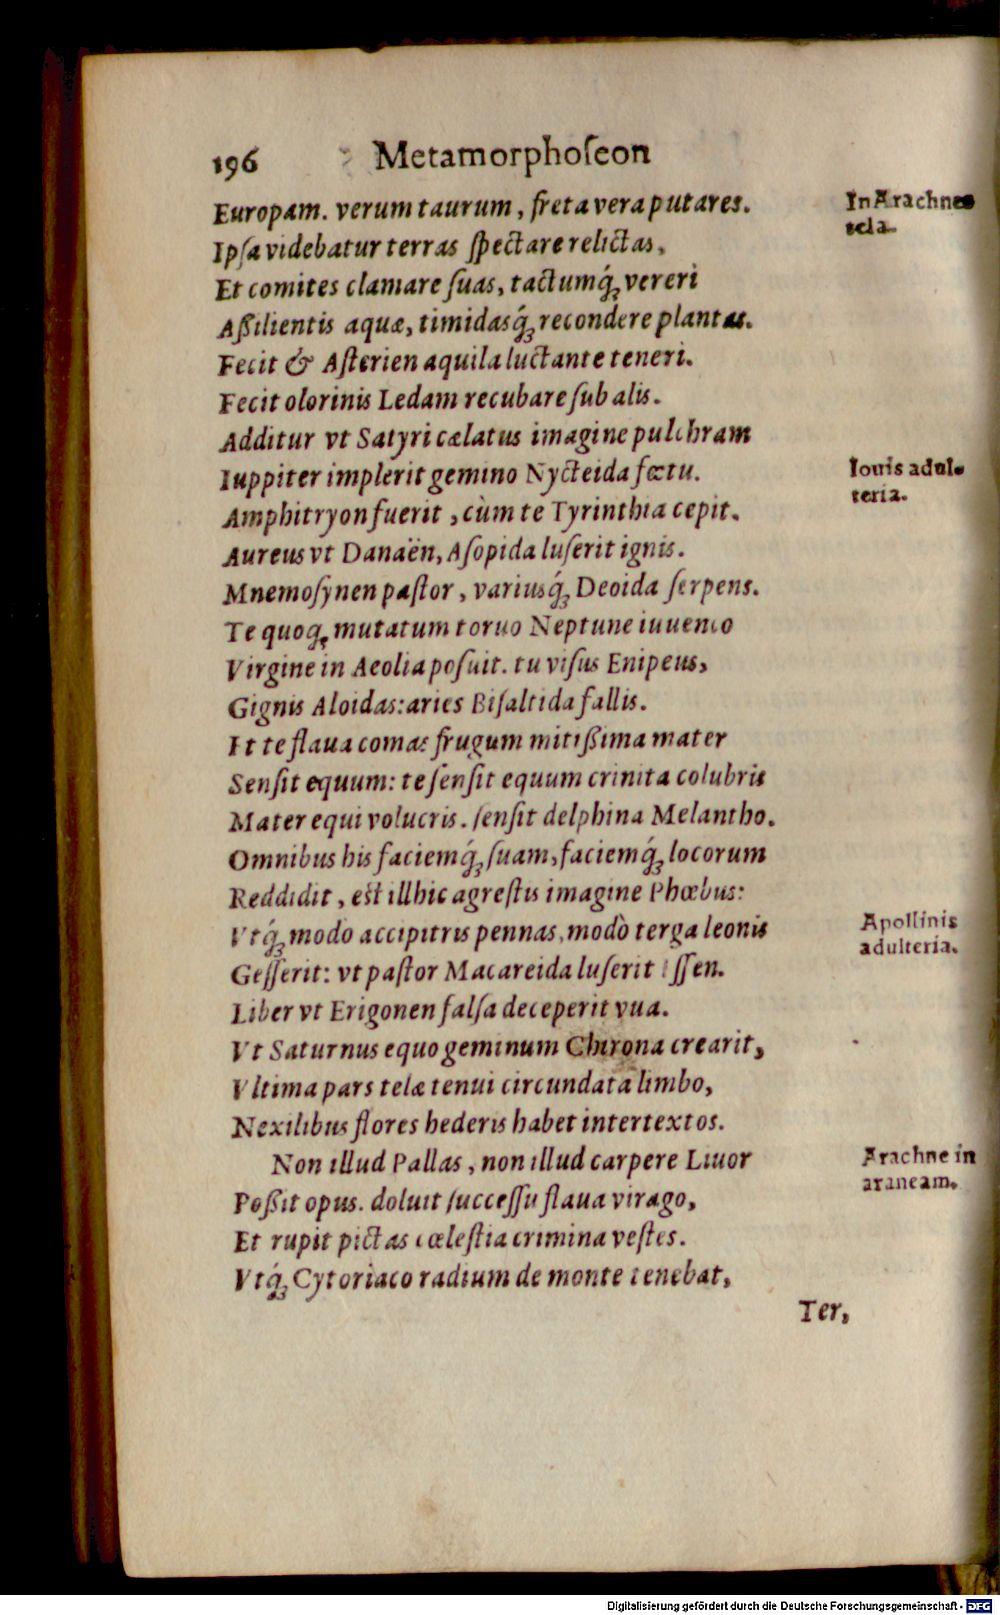 196 Metamorphoſeon
Europam. verum taurum, freta vera putares.
In Arachnes
tela.
Ipſa videbatur terras ſpectare relictas,
Et comites clamare ſuas, tactumq́; vereri
Aßilientis aquæ, timidasq́; recondere plantas.
Fecit & Aſterien aquila luctante teneri.
Fecit olorinis Ledam recubare ſub alis.
Additur vt Satyri cælatus imagine pulchram
Iuppiter implerit gemino Nycteida fœtu.
Iouis adul-
teria.
Amphitryon fuerit, cùm te Tyrinthia cepit.
Aureus vt Danaën, Aſopida luſerit ignis.
Mnemoſynen paſtor, variusq́; Deoida ſerpens.
Te quoq; mutatum toruo Neptune iuuenco
Virgine in Aeolia poſuit. tu viſus Enipeus,
Gignis Aloidas: aries Biſaltida fallis.
Et te flaua comas frugum mitißima mater
Senſit equum: te ſenſit equum crinita colubris
Mater equi volucris. ſenſit delphina Melantho.
Omnibus his faciemq́; ſuam, faciemq́; locorum
Reddidit, eſt illhic agreſtis imagine Phœbus:
Vtq́; modo accipitris pennas, modò terga leonis
Apollinis
adulteria.
Geſſerit: vt paſtor Macareida luſerit Iſſen.
Liber vt Erigonen falſa deceperit vua.
Vt Saturnus equo geminum Chirona crearit,
Vltima pars telæ tenui circundata limbo,
Nexilibus flores hederis habet intertextos.
Non illud Pallas, non illud carpere Liuor
Arachne in
araneam.
Poßit opus. doluit ſucceſſu flaua virago,
Et rupit pictas cœleſtia crimina veſtes.
Vtq́; Cytoriaco radium de monte tenebat,
Ter,
Digitalisierung gefördert durch die Deutsche Forschungsgemeinschaft - DFG